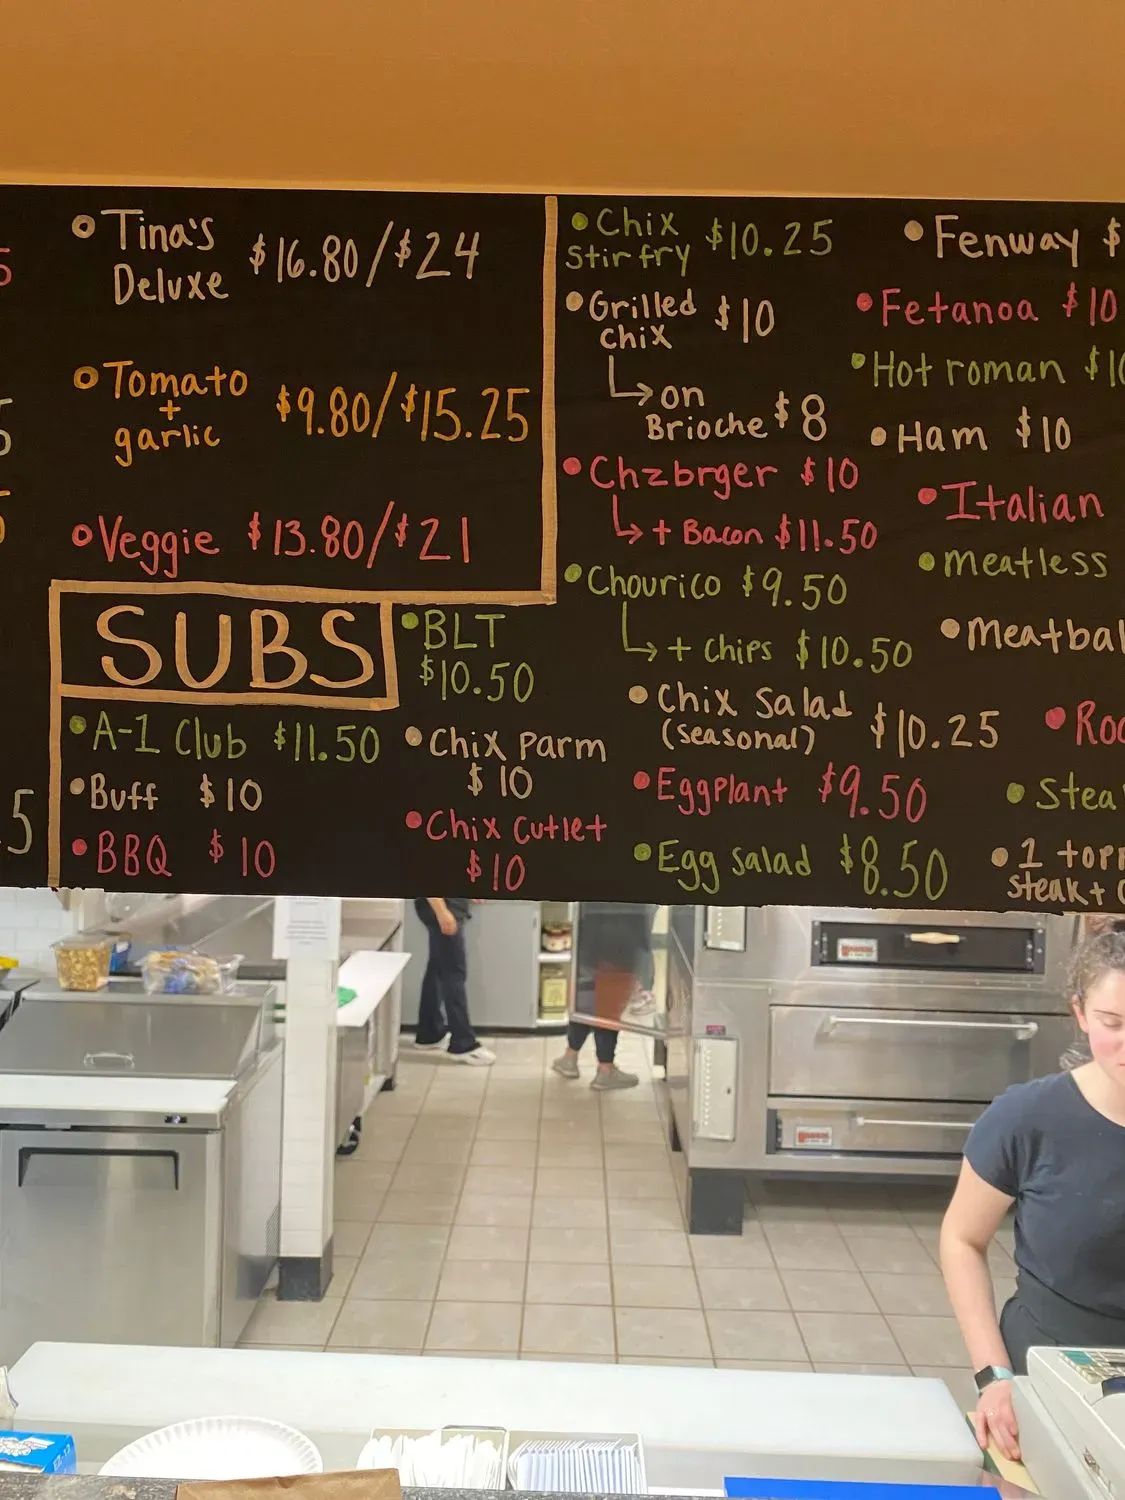 Tina's
Deluxe $16.80/$24
Tomato
+
garlic $9.80/$15.25
Veggie $13.80/$21
SUBS
A-1 Club $11.50
Buff $10
BBQ $10
BLT
$10.50
Chix Parm
$10
Chix Cutlet
$10
Chix
Stir fry $10.25
Grilled
Chix $10
on
Brioche $8
Chzbrger $10
+ Bacon $11.50
Chourico $9.50
+ Chips $10.50
Chix Salad
(seasonal) $10.25
Eggplant $9.50
Egg Salad $8.50
Fenway $
Fetanoa $10
Hot roman $10
Ham $10
Italian
Meatless
Meatbal
Roa
Stea
1 topp
Steak +
5
5
.5